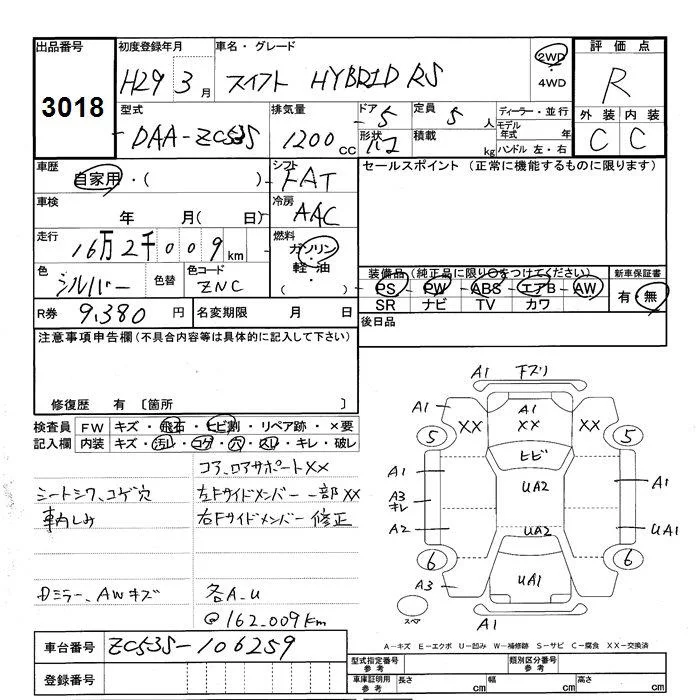 出品番号 初度登録年月 車名・グレード 評価点
3018 H29 3月 スイフト HYBRID RS 2WD ・ 4WD R
型式 排気量 ドア 定員 ディーラー・並行 外装 内装
DAA-ZC53S 1200cc 5 5人 モデル年式 年 C C
形状 積載 kg ハンドル 左・右
車歴 シフト セールスポイント (正常に機能するものに限ります)
自家用・( ) FAT
車検 年 月( 日) 冷房 AAC
走行 16万2千009km 燃料 ガソリン・軽油・( )
色 シルバー 色替 色コード ZNC
装備品(純正品に限り○をつけてください) 新車保証書
PS PW ABS エアB AW 有・無
SR ナビ TV カワ
R券 9,380円 名変期限 月 日 後日品
注意事項申告欄(不具合内容等は具体的に記入して下さい)
修復歴 有 〔箇所
検査員 FW キズ・飛石・ヒビ割・リペア跡・×要
記入欄 内装 キズ・汚レ・コゲ・穴・スレ・キレ・破レ
コア、ロアサポートXX
シートシワ、コゲ穴 左Fサイドメンバー 一部XX
車内しみ 右Fサイドメンバー 修正
Dミラー、AWキズ 各A.U
@162.009km
A1 下スリ
A1 A1
XX XX XX
5 5
ヒビ
A1 UA2 A1
A3 キレ
A2 UA2 UA1
6 6
A3 UA1
スペア A1
車台番号 ZC53S-106259
登録番号
A-キズ E-エクボ U-凹み W-補修跡 S-サビ C-腐食 XX-交換済
型式指定番号 参考 類別区分番号 参考
車庫証明用 参考 長さ cm 幅 cm 高さ cm